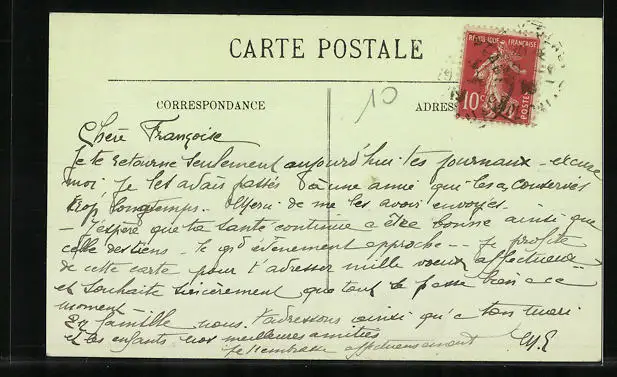 CARTE POSTALE
CORRESPONDANCE
ADRES
10
RÉPUBLIQUE FRANÇAISE
10c POSTES
Chère Françoise
Je te retourne seulement aujourd'hui tes journaux - excuse
moi, je les avais passés à une amie qui les a conservés
trop longtemps. Merci de me les avoir envoyés.
- J'espère que ta santé continue à être bonne ainsi que
celle des tiens - le gd évènement approche -- Je profite
de cette carte pour t'adresser mille voeux affectueux
et souhaite sincèrement que tout se passe bien à ce
moment -
En famille nous t'adressons ainsi qu'à ton mari
et les enfants nos meilleures amitiés
Je t'embrasse affectueusement